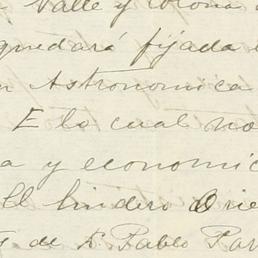 Valle y Corona
quedará fijada
Astronomica
E la cual no
a y economic
El lindero Orie
de A. Pablo Par